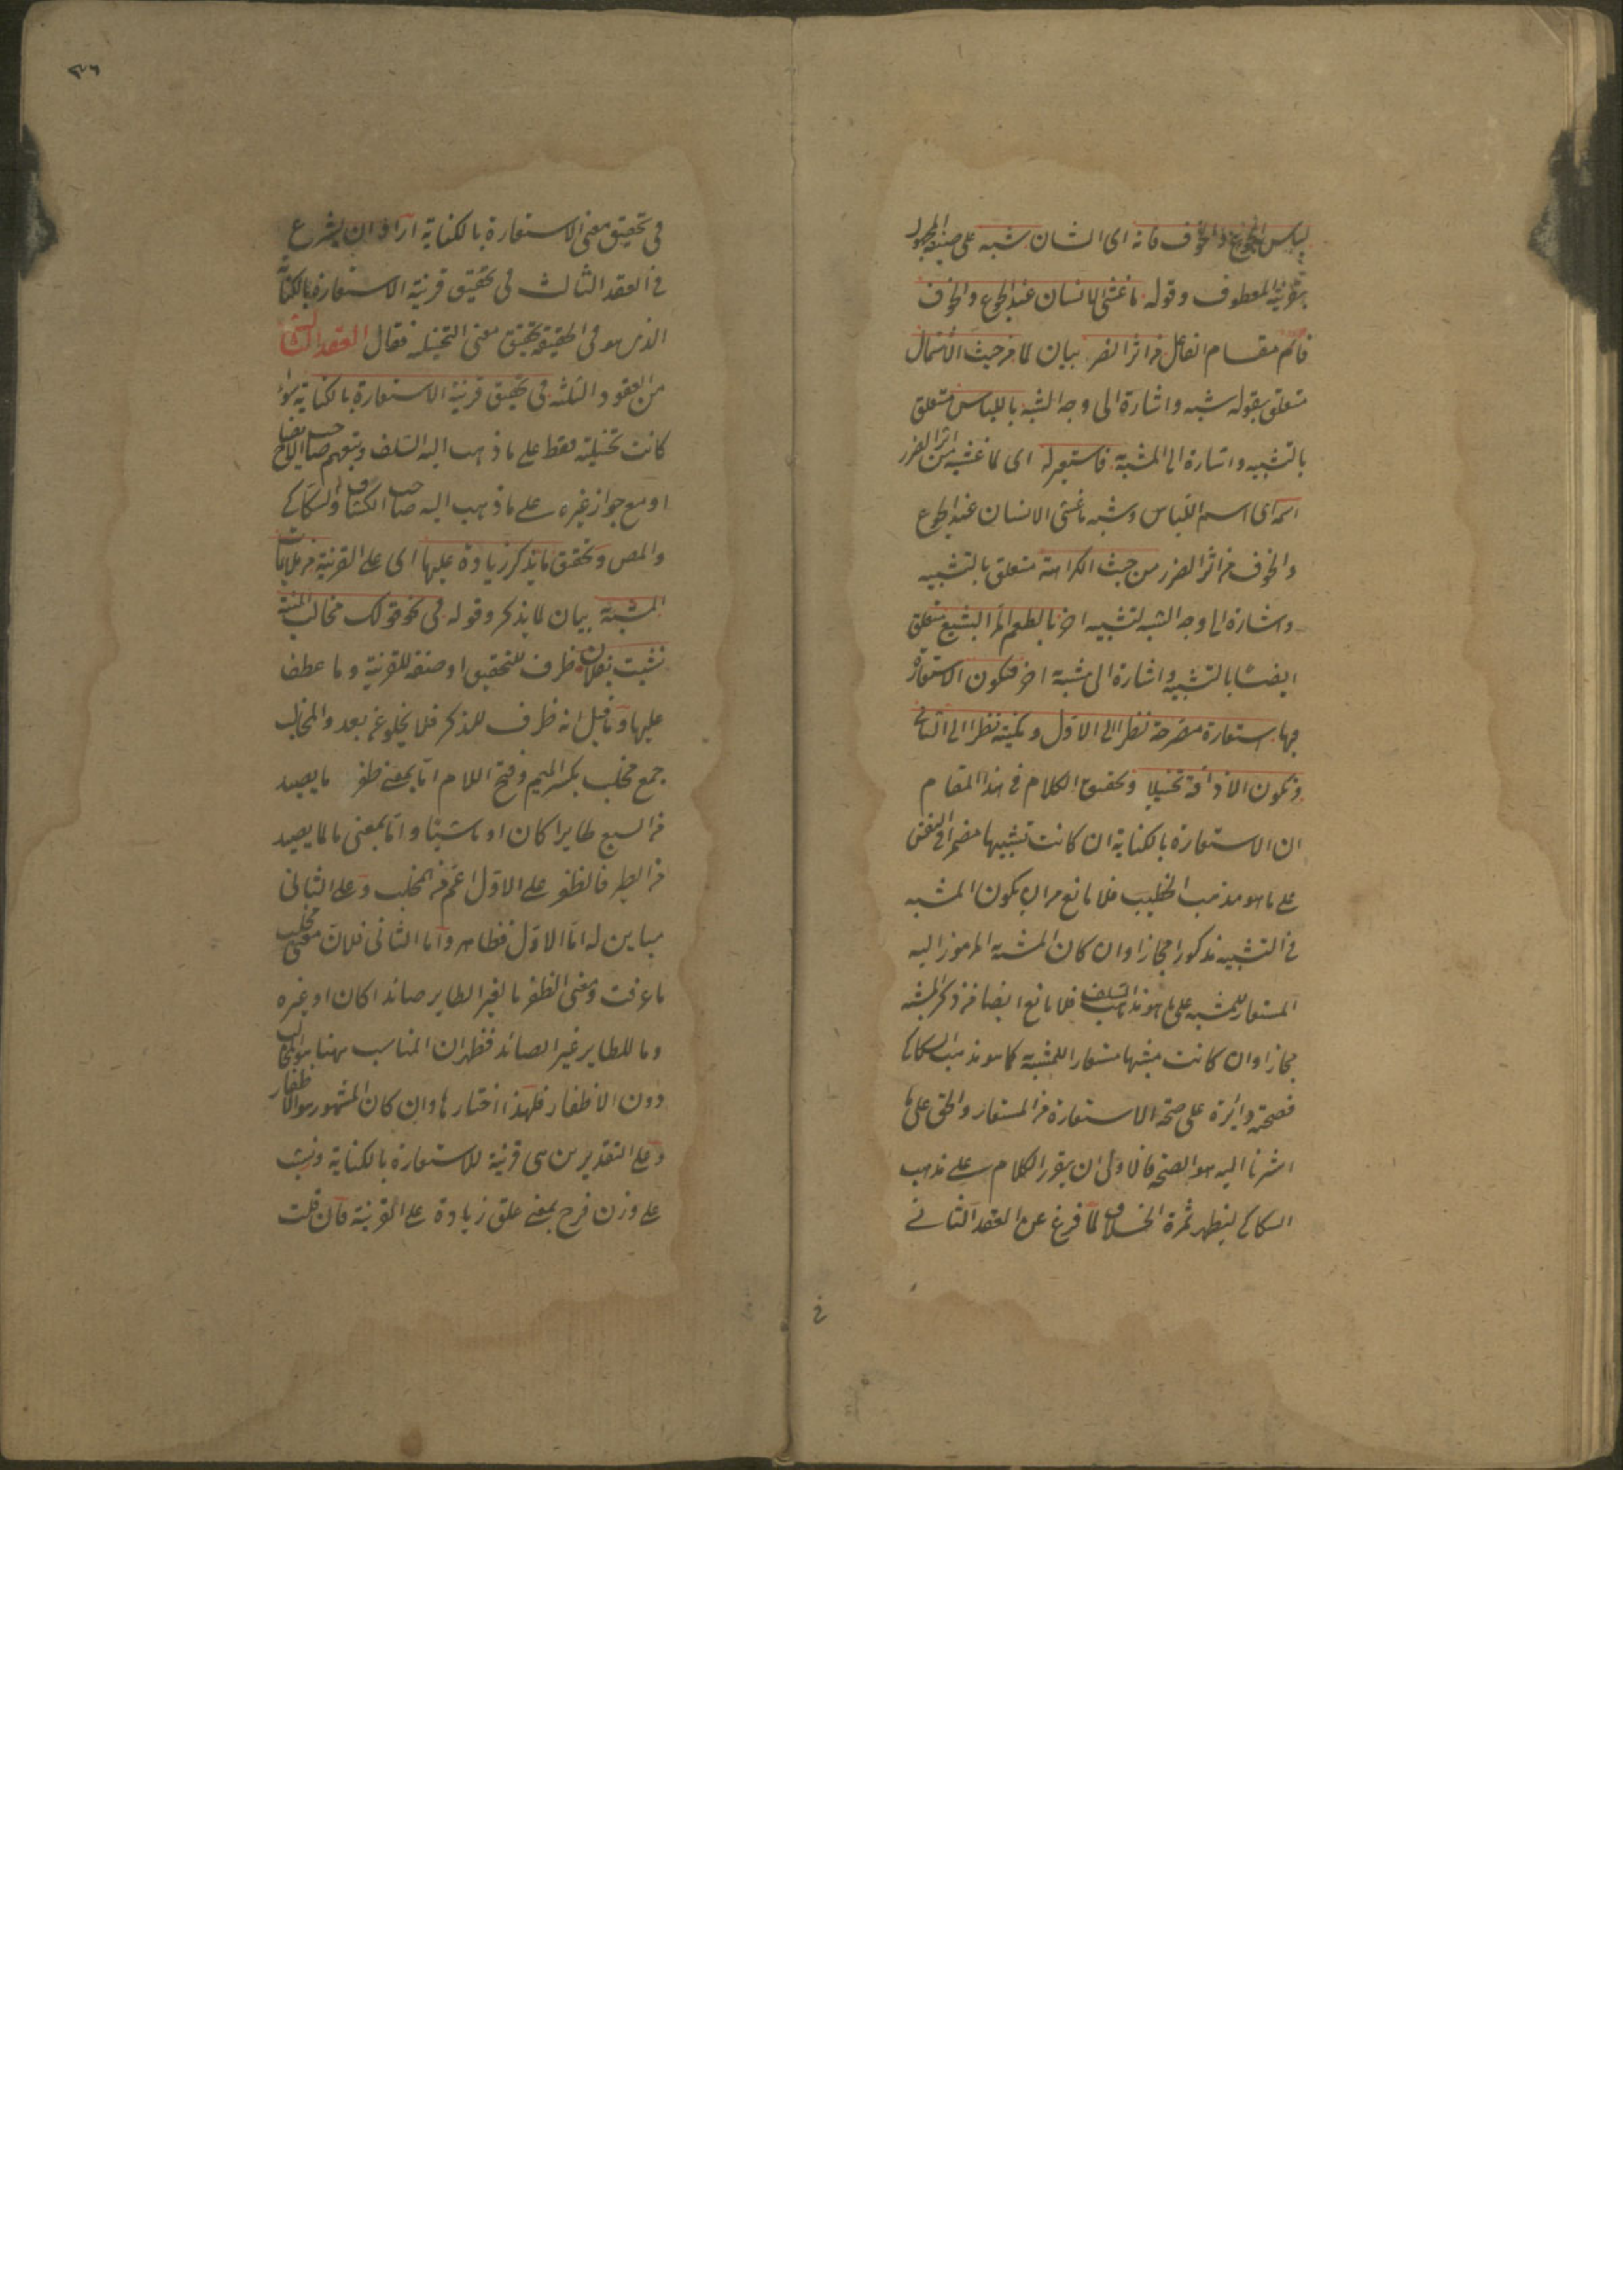 لباس الجوع والخوف فانه اى الشان شبه على صيغة المجهول
بقرينة المعطوف وقوله ما غشى الانسان عند الجوع والخوف
قائم مقام الفاعل من اثر الضرر بيان لما من حيث الاشتمال
متعلق بقوله شبه واشارة الى وجه الشبه باللباس متعلق
بالتشبيه واشارة الى المشبه به فاستعير له اى لما غشيه من اثر الضرر
اسمه اى اسم اللباس وشبه ما غشى الانسان عند الجوع
والخوف من اثر الضرر من حيث الكراهة متعلق بالتشبيه
واشارة الى وجه الشبه لتشبيه اخر بالطعم المر البشيع متعلق
ايضا بالتشبيه واشارة الى مشبه به اخر فيكون الاستعارة
فيها استعارة مصرحة نظرا الى الاول ومكنية نظرا الى الثانى
وتكون الاذاقة تخييلا وتحقيق الكلام فى هذا المقام
ان الاستعارة بالكناية ان كانت تشبيها مضمرا فى النفس
على ما هو مذهب الخطيب فلا مانع من ان يكون المشبه
فى التشبيه مذكورا مجازا وان كان المشبه به المرموز اليه
المستعار للمشبه على ما هو مذهب السلف فلا مانع ايضا من ذكر المشبه
مجازا وان كانت مشبها مستعارا للمشبه به كما هو مذهب السكاكى
فصحته دائرة على صحة الاستعارة من المستعار والحق على ما
اشرنا اليه هو الصحة فالاولى ان يقرر الكلام على مذهب
السكاكى ليظهر ثمرة الخلاف لما فرغ عن العقد الثانى
فى
٣٦
فى تحقيق معنى الاستعارة بالكناية اراد ان يشرع
فى العقد الثالث فى تحقيق قرينة الاستعارة بالكناية
الذى هو فى الحقيقة تحقيق معنى التخييلية فقال العقد الثالث
من العقود الثلثة فى تحقيق قرينة الاستعارة بالكناية سواء
كانت تخييلية فقط على ما ذهب اليه السلف وتبعهم صاحب الايضاح
او مع جواز غيره على ما ذهب اليه صاحب الكشاف والسكاكى
والمص وتحقق ما يذكر زيادة عليها اى على القرينة من ملايمات
المشبه به بيان لما يذكر وقوله فى نحو قولك مخالب المنية
نشبت بفلان ظرف للتحقيق او صفة للقرينة وما عطف
عليها وما قيل انه ظرف للذكر فلا يخلو عن بعد والمخالب
جمع مخلب بكسر الميم وفتح اللام اما بمعنى ظفر ما يصيد
من السبع طايرا كان او ماشيا واما بمعنى ما لما يصيد
من الطير فالظفر على الاول اعم من المخلب وعلى الثانى
مباين له اما الاول فظاهر واما الثانى فلان معنى مخلب
ما عرفت ومعنى الظفر ما لغير الطاير صائدا كان او غيره
وما للطاير غير الصائد فظهر ان المناسب ههنا هو المخالب
دون الاظفار فلهذا اختارها وان كان المشهور هو الاظفار
وعلى التقديرين هى قرينة للاستعارة بالكناية ونشبت
على وزن فرح بمعنى علق زيادة على القرينة فان قلت